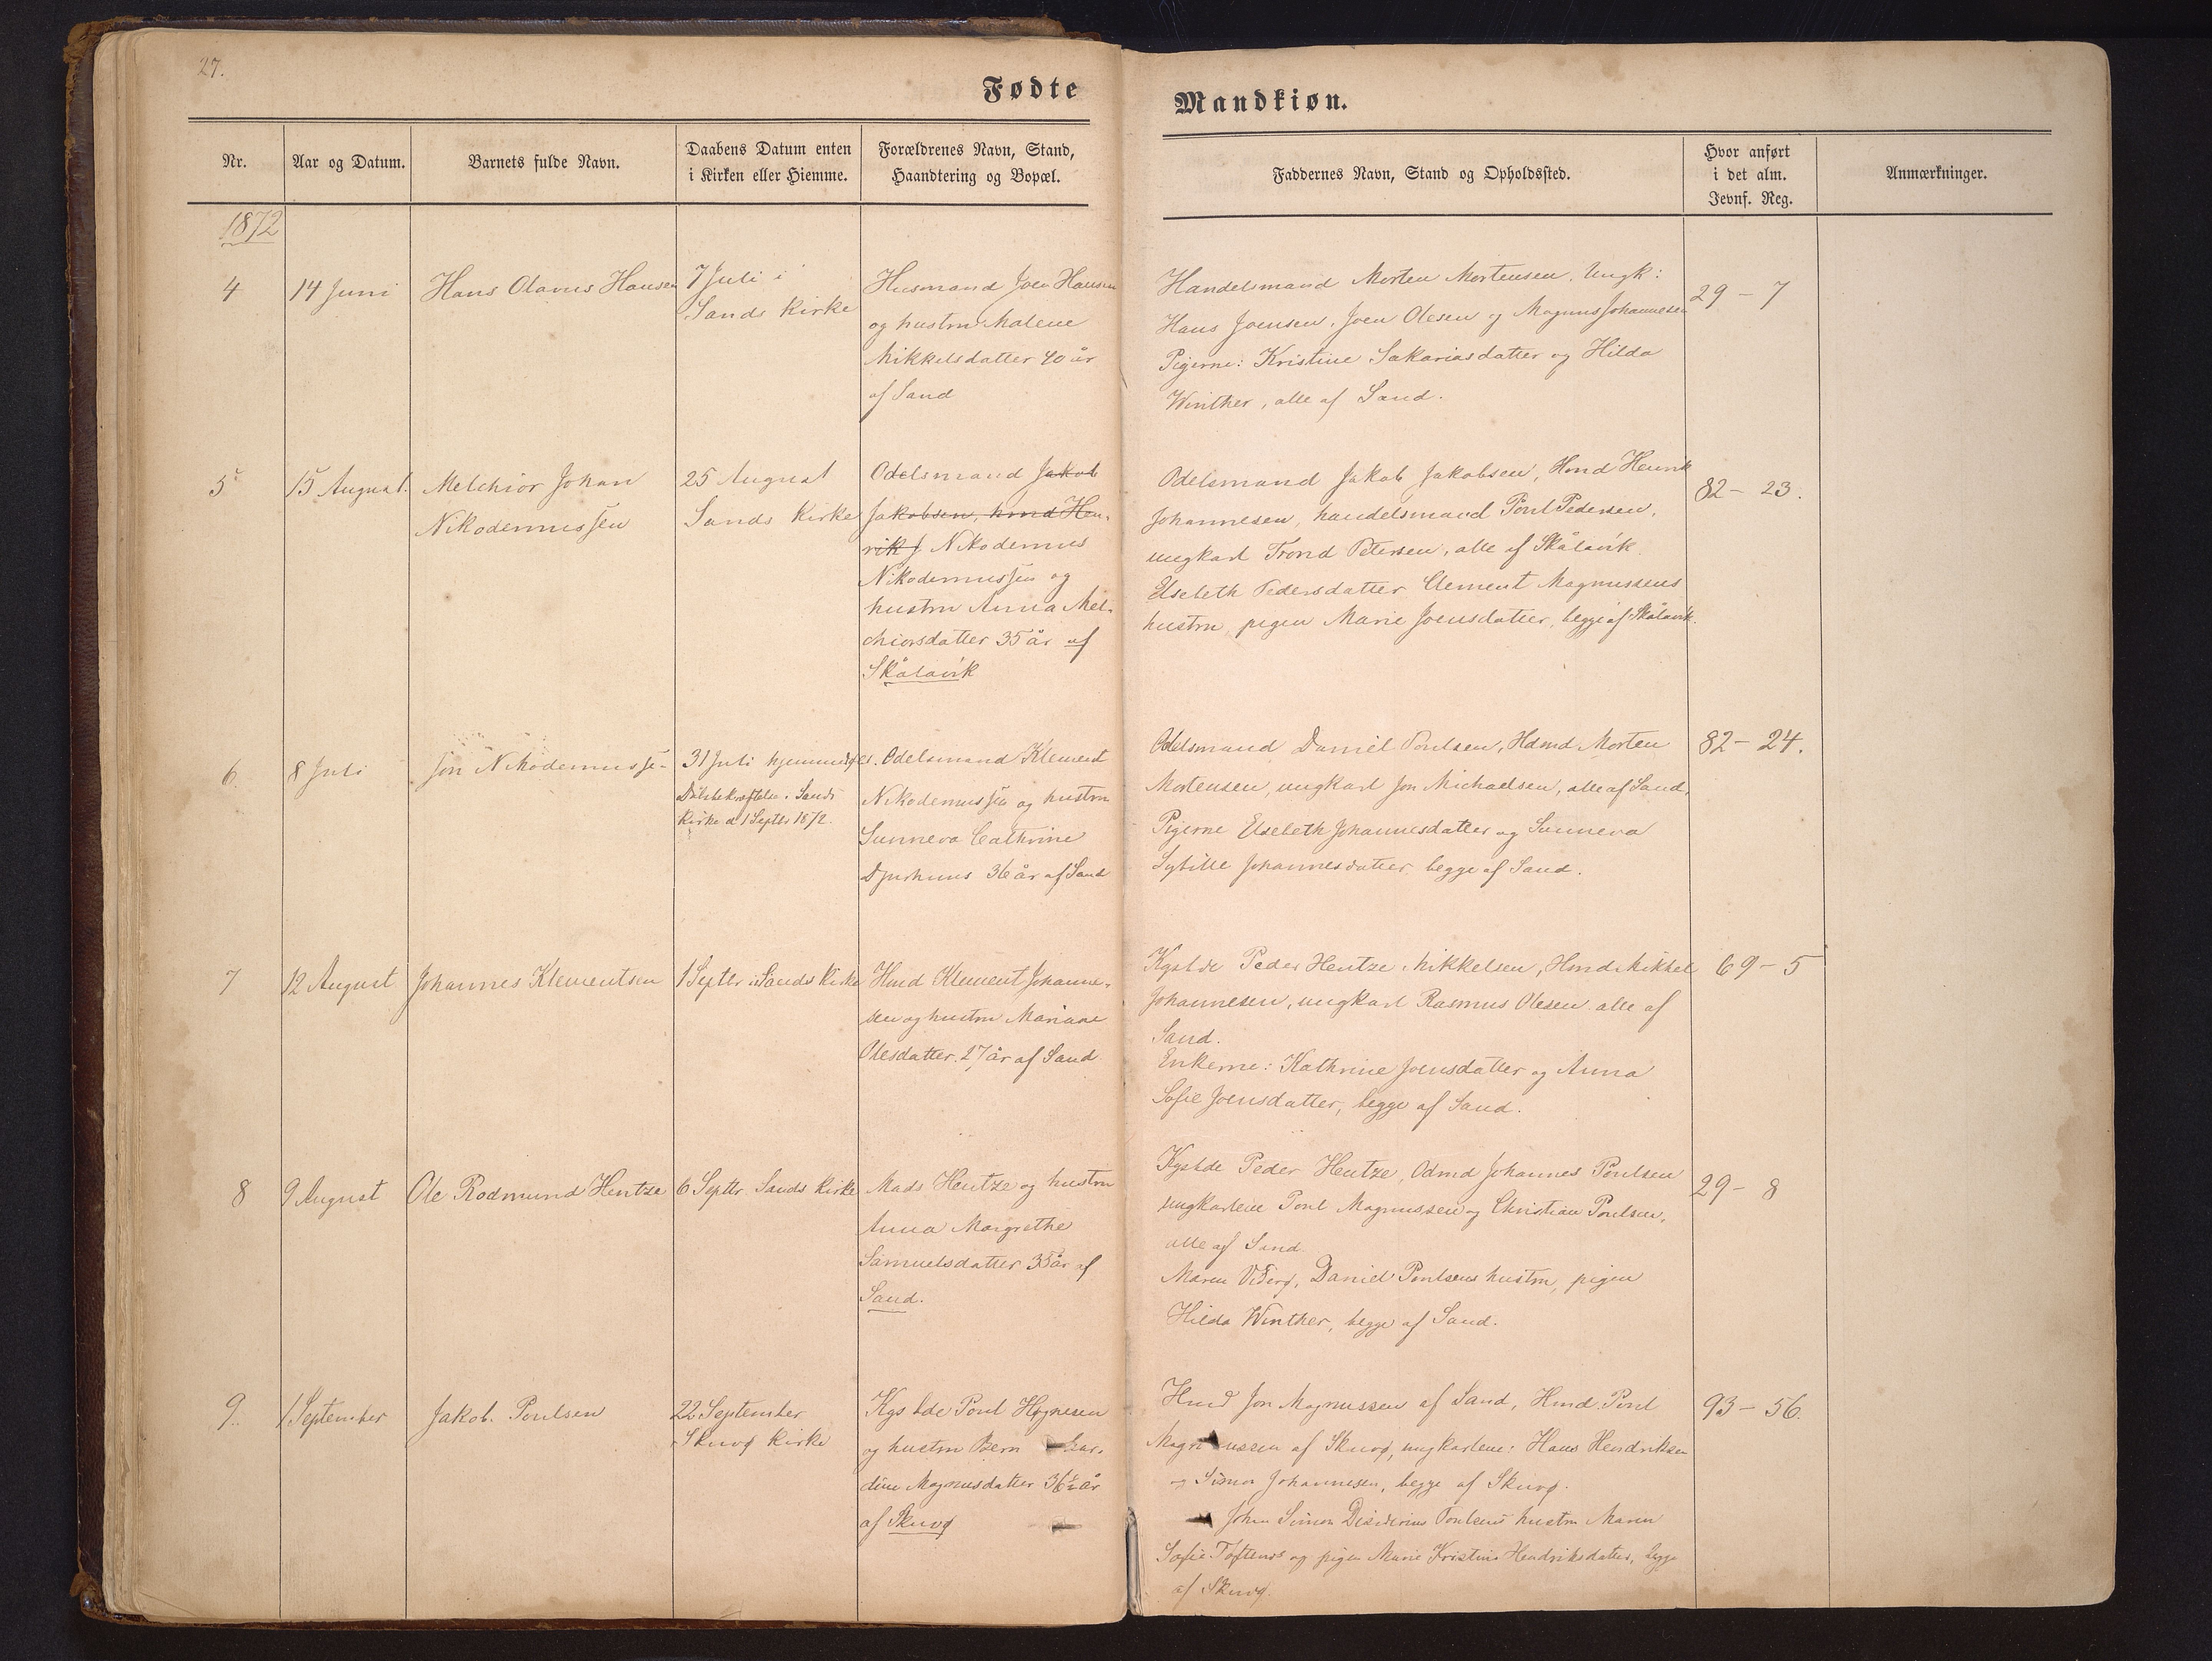 27.
Fødte
Mandkiøn.
Nr.
Aar og Datum.
Barnets fulde Navn.
Daabens Datum enten
i Kirken eller Hiemme.
Forældrenes Navn, Stand,
Haandtering og Bopæl.
Faddernes Navn, Stand og Opholdssted.
Hvor anført
i det alm.
Jevnf. Reg.
Anmærkninger.
1872
4
14 Juni
Hans Olavus Hansen
7 Juli i
Sands Kirke
Husmand Joen Hansen
og hustru Malene
Mikkelsdatter 40 år
af Sand
Handelsmand Morten Mortensen. Ungk:
Hans Joensen, Joen Olesen og Magnus Johannesen
Pigerne: Kristine Sakariasdatter og Hilda
Winther, alle af Sand.
29 - 7
5
15 August.
Melchior Johan
Nikodemussen
25 August
Sands Kirke
Odelsmand Jakob
Jakobsen, hmd Hen-
rik J Nikodemus
Nikodemussen og
hustru Anna Mel-
chiorsdatter 35 år af
Skålavik
Odelsmand Jakob Jakobsen, Hmd Henrik
Johannesen, handelsmand Poul Pedersen,
ungkarl Trond Petersen, alle af Skålavik.
Elsebeth Pedersdatter Clement Magnussens
hustru, pigen Marie Joensdatter, begge af Skålavik.
82 - 23.
6
8 Juli
Jon Nikodemusse-
31 Juli hjemmedøbt.
Dåbsbekræftelse i Sands
Kirke d 1 Septbr 1872.
Odelsmand Klement
Nikodemussen og hustru
Sunneva Cathrine
Djurhuus 36 år af Sand
Odelsmand Daniel Poulsen, Hdmd Morten
Mortensen, ungkarl Jon Michaelsen, alle af Sand.
Pigerne Elsebeth Johannesdatter og Sunneva
Sybille Johannesdatter begge af Sand.
82 - 24.
7
12 August
Johannes Klementsen
1 Septbr i Sands Kirke
Hmd Klement Johanne-
sen og hustru Mariane
Olesdatter. 27 år af Sand
Kgsbde Peder Hentze Mikkelsen, Hmd Mikkel
Johannesen, ungkarl Rasmus Olesen alle af
Sand.
Enkerne: Kathrine Joensdatter og Anna
Sofie Joensdatter, begge af Sand.
69 - 5
8
9 August
Ole Rodmund Hentze
6 Septbr. Sands Kirke
Mads Hentze og hustru
Anna Margrethe
Samuelsdatter 35 år af
Sand.
Kgsbde Peder Hentze, Odmd Johannes Poulsen
ungkarlene Poul Magnussen og Christian Poulsen,
alle af Sand.
Maren Viderø, Daniel Poulsens hustru, pigen
Hilda Winther, begge af Sand.
29 - 8
9.
1 September
Jakob. Poulsen
22 September
Skuvø Kirke
Kgsbde Poul Høgnesen
og hustru Bern har-
dine Magnusdatter 36½ år
af Skuvø
Hmd Jon Magnussen af Sand, Hmd. Poul
Magnussen af Skuvø, ungkarlene: Hans Hendriksen
og Simon Johannesen, begge af Skuvø.
Johan Simon Desiderius Poulsens hustru Maren
Sofie Toftenes og pigen Marie Kristine Hendriksdatter, begge
af Skuvø.
93 - 56.